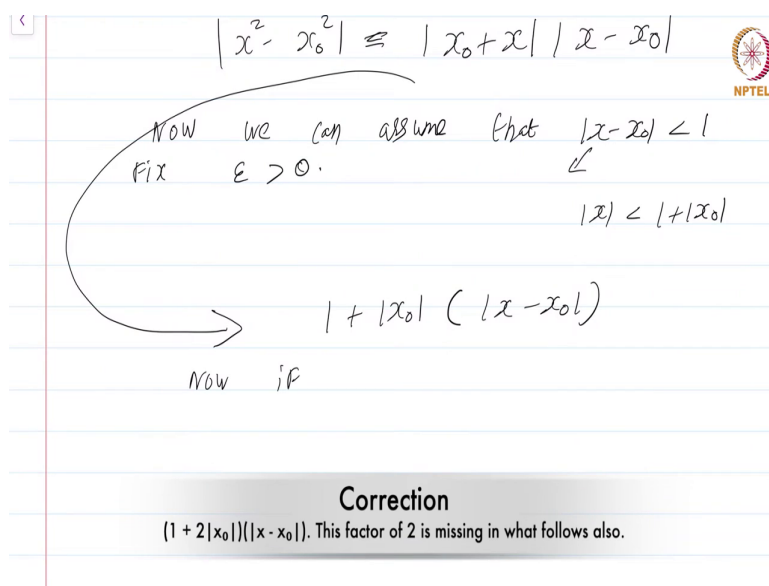 |x² - x₀²| ≤ |x₀+x| |x - x₀|
NPTEL
Now we can assume that |x-x₀| < 1
Fix ε > 0.
|x| < 1+|x₀|
1 + |x₀| ( |x - x₀|)
Now if
Correction
(1 + 2|x₀|)(|x - x₀|). This factor of 2 is missing in what follows also.